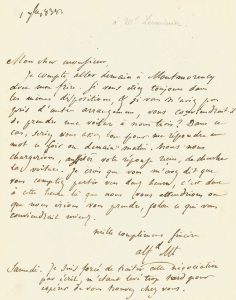 à Mr
Mon cher monsieur,
Je compte aller demain à Montmorency
avec mon frère. Si vous êtes toujours dans
les mêmes dispositions et si vous n'avez pas
pris d'autre arrangement, vous conviendrait-il
de prendre une voiture à nous trois? Dans ce
cas, seriez vous assez bon pour me répondre un
mot ce soir ou demain matin. Nous nous
chargerions, votre réponse reçue, de chercher
la voiture. Je crois que vous m'avez dit que
vous comptiez partir vers deux heures, c'est donc
à cette heure là que nous vous attendrions ou
que nous irions vous prendre, selon ce qui vous
conviendrait mieux.
mille complimens sincères
Alfd Mt
Samedi. Je suis forcé de traiter cette négociation
par écrit, étant trop tard pour
espérer de vous trouver chez vous.